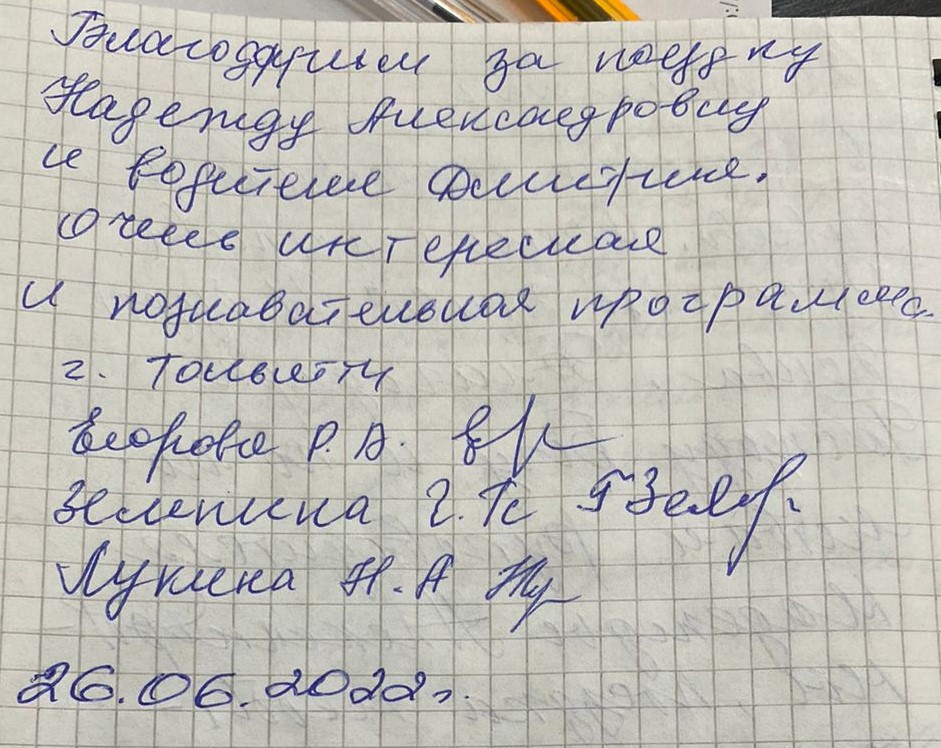 Благодарим за поездку
Надежду Александровну
и водителя Дмитрия.
Очень интересная
и познавательная программа.
г. Тольятти
Егорова Р. А.
Г.
Лукина Н. А
26.06.2022г.